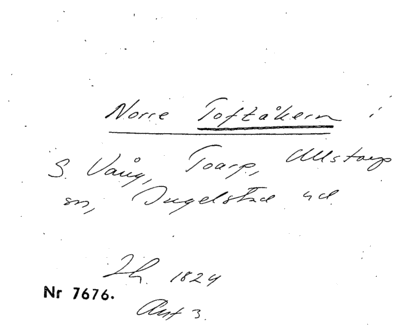 Norre Toftåkern i
S. Vång, Toarp, Ullstorps
sn, Ingelstad hd.
Lh. 1824
Nr 7676.
Akt 3.